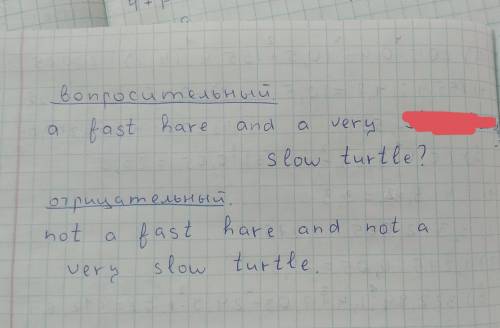 вопросительный
a fast hare and a very
slow turtle?
отрицательный.
not a fast hare and not a
very slow turtle.